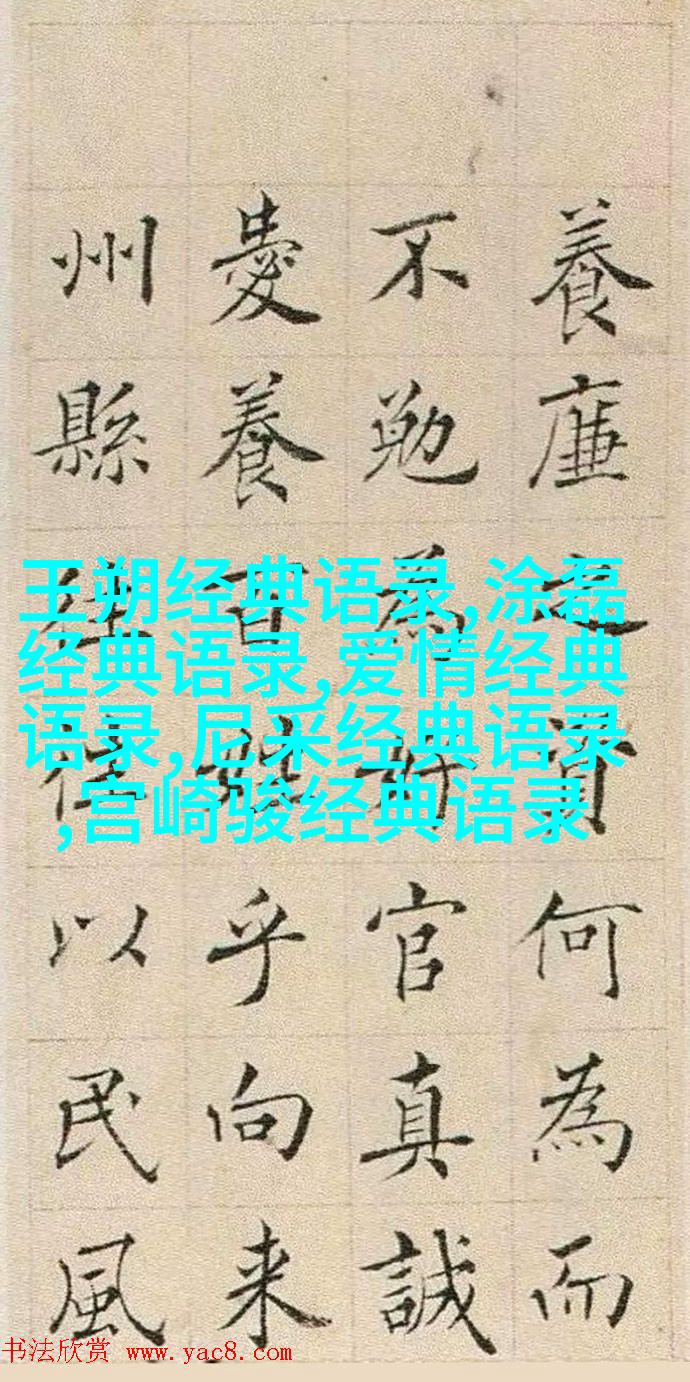 養廉之資何為而
不勉為好官真誠
愛養百姓乎向来
州縣往往以民風
王朔经典语录,涂磊
经典语录,爱情经典
语录,尼采经典语录
,宫崎骏经典语录
书法欣赏 www.yac8.com